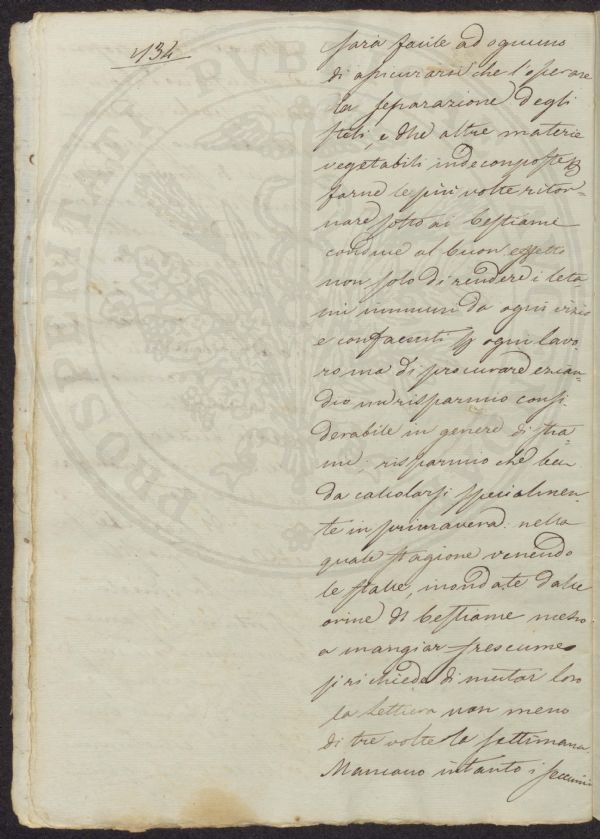 434
sarà facile ad ognuno
di assicurarsi che l'operare
la separazione degli
steli, e dlle altre materie
vegetabili indecomposte p
farne le più volte ritor-
nare sotto ai bestiame
conduce al buon effetto
non solo di rendere i leta
mi immuni da ogni vizio
e confacenti p ogni lavo-
ro ma di procurare ezian-
dio un risparmio consi-
derabile in genere di stra-
mi; risparmio che ben
da calcolarsi specialmen-
te in primavera: nella
quale stagione venendo
le stalle, inondate dalle
orine dl bestiame messo
a mangiar frescume
si richiede di mutar loro
la lettiera non meno
di tre volte la settimana
Mancano intanto i
PROSPERITATI PUBLICAE